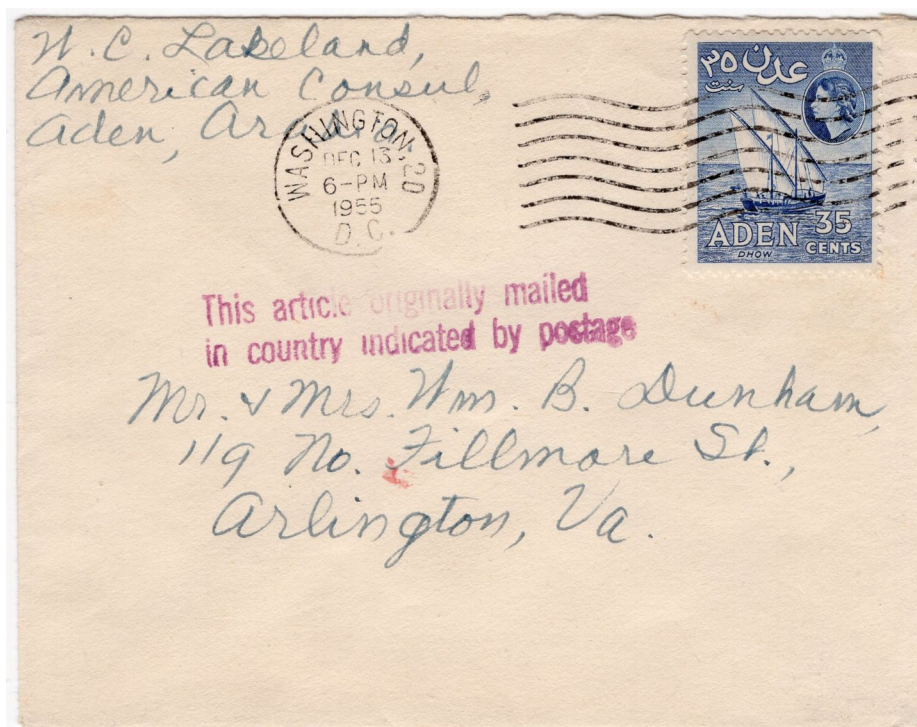 W. C. Lakeland,
American Consul,
Aden, Arabia
WASHINGTON, 20
DEC 13
6-PM
1955
D.C.
٣٥ عدن
سنت
ADEN 35
CENTS
DHOW
This article originally mailed
in country indicated by postage
Mr. & Mrs. Wm. B. Dunham,
119 No. Fillmore St.,
Arlington, Va.